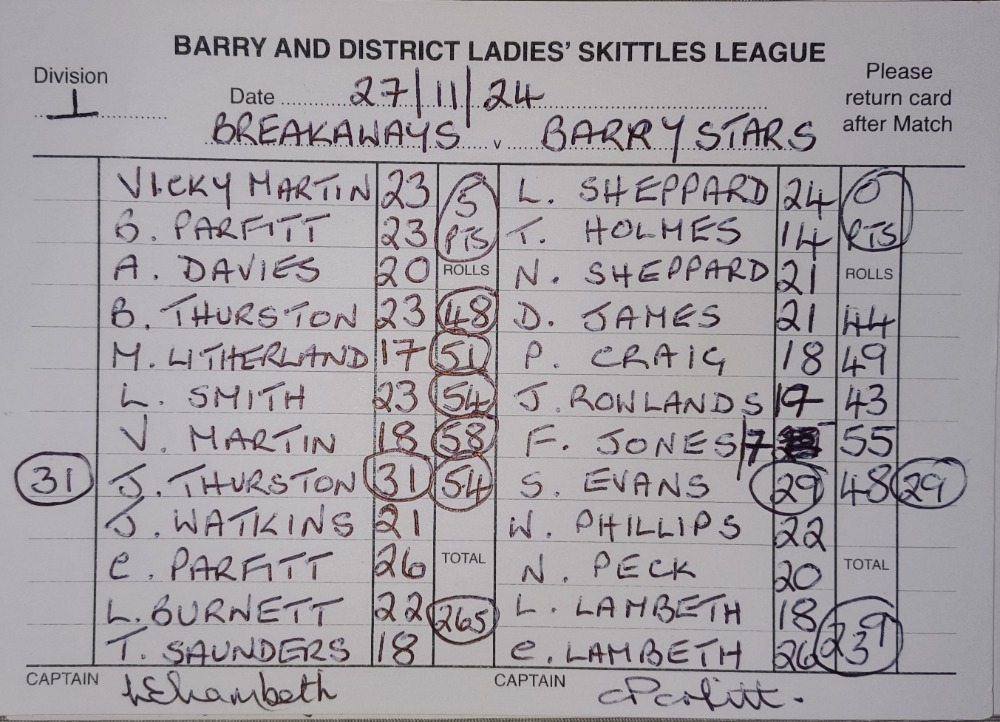 BARRY AND DISTRICT LADIES' SKITTLES LEAGUE
Division
1
Date 27/11/24
Please
return card
after Match
BREAKAWAYS v BARRY STARS
VICKY MARTIN 23 5 L. SHEPPARD 24 0
B. PARFITT 23 PTS T. HOLMES 14 PTS
A. DAVIES 20 ROLLS N. SHEPPARD 21 ROLLS
B. THURSTON 23 48 D. JAMES 21 44
M. LITHERLAND 17 51 P. CRAIG 18 49
L. SMITH 23 54 J. ROWLANDS 19 43
V. MARTIN 18 58 F. JONES 7 55
31 J. THURSTON 31 54 S. EVANS 29 48 29
J. WATKINS 21 W. PHILLIPS 22
C. PARFITT 26 TOTAL N. PECK 20 TOTAL
L. BURNETT 22 265 L. LAMBETH 18
T. SAUNDERS 18 C. LAMBETH 26 239
CAPTAIN CAPTAIN C Parfitt.